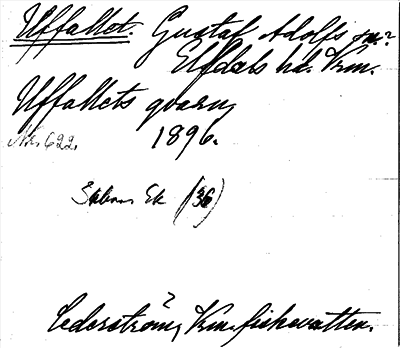 Uffallet. Gustaf Adolfs sn.?
Elfdals hd. Vrm.
Uffallets qvarn,
Nr. 622. 1896.
Ek (36)
?
Cederström, Vrm. fiskevatten.